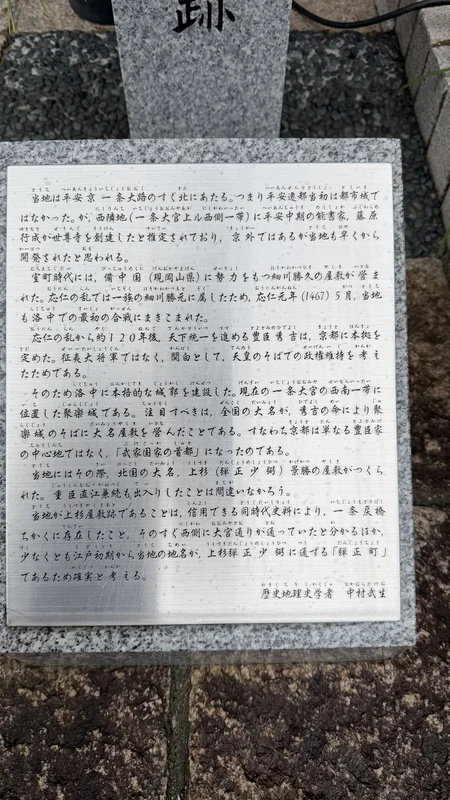 跡
当地は平安京一条大路のすぐ北にあたる。つまり平安遷都当初は都市域で
はなかった。が、西隣地(一条大宮上ル西側一帯)に平安中期の能書家、藤原
行成が世尊寺を創建したと推定されており、京外ではあるが当地も早くから
開発されたと思われる。
室町時代には、備中国(現岡山県)に勢力をもつ細川勝久の屋敷が営ま
れた。応仁の乱では一族の細川勝元に属したため、応仁元年(1467)5月、当地
も洛中での最初の合戦にまきこまれた。
応仁の乱から約120年後、天下統一を進める豊臣秀吉は、京都に本拠を
定めた。征夷大将軍ではなく、関白として、天皇のそばでの政権維持を考え
たためである。
そのため洛中に本格的な城郭を建設した。現在の一条大宮の西南一帯に
位置した聚楽城である。注目すべきは、全国の大名が、秀吉の命により聚
楽城のそばに大名屋敷を営んだことである。すなわち京都は単なる豊臣家
の中心地ではなく、「武家国家の首都」になったのである。
当地にはその際、北国の大名、上杉(弾正少弼)景勝の屋敷がつくら
れた。重臣直江兼続も出入りしたことは間違いなかろう。
当地が上杉屋敷跡であることは、信用できる同時代史料により、一条戻橋
ちかくに存在したこと、そのすぐ西側に大宮通りが通っていたと分かるほか、
少なくとも江戸初期から当地の地名が、上杉弾正少弼に通ずる「弾正町」
であるため確実と考える。
歴史地理史学者 中村武生